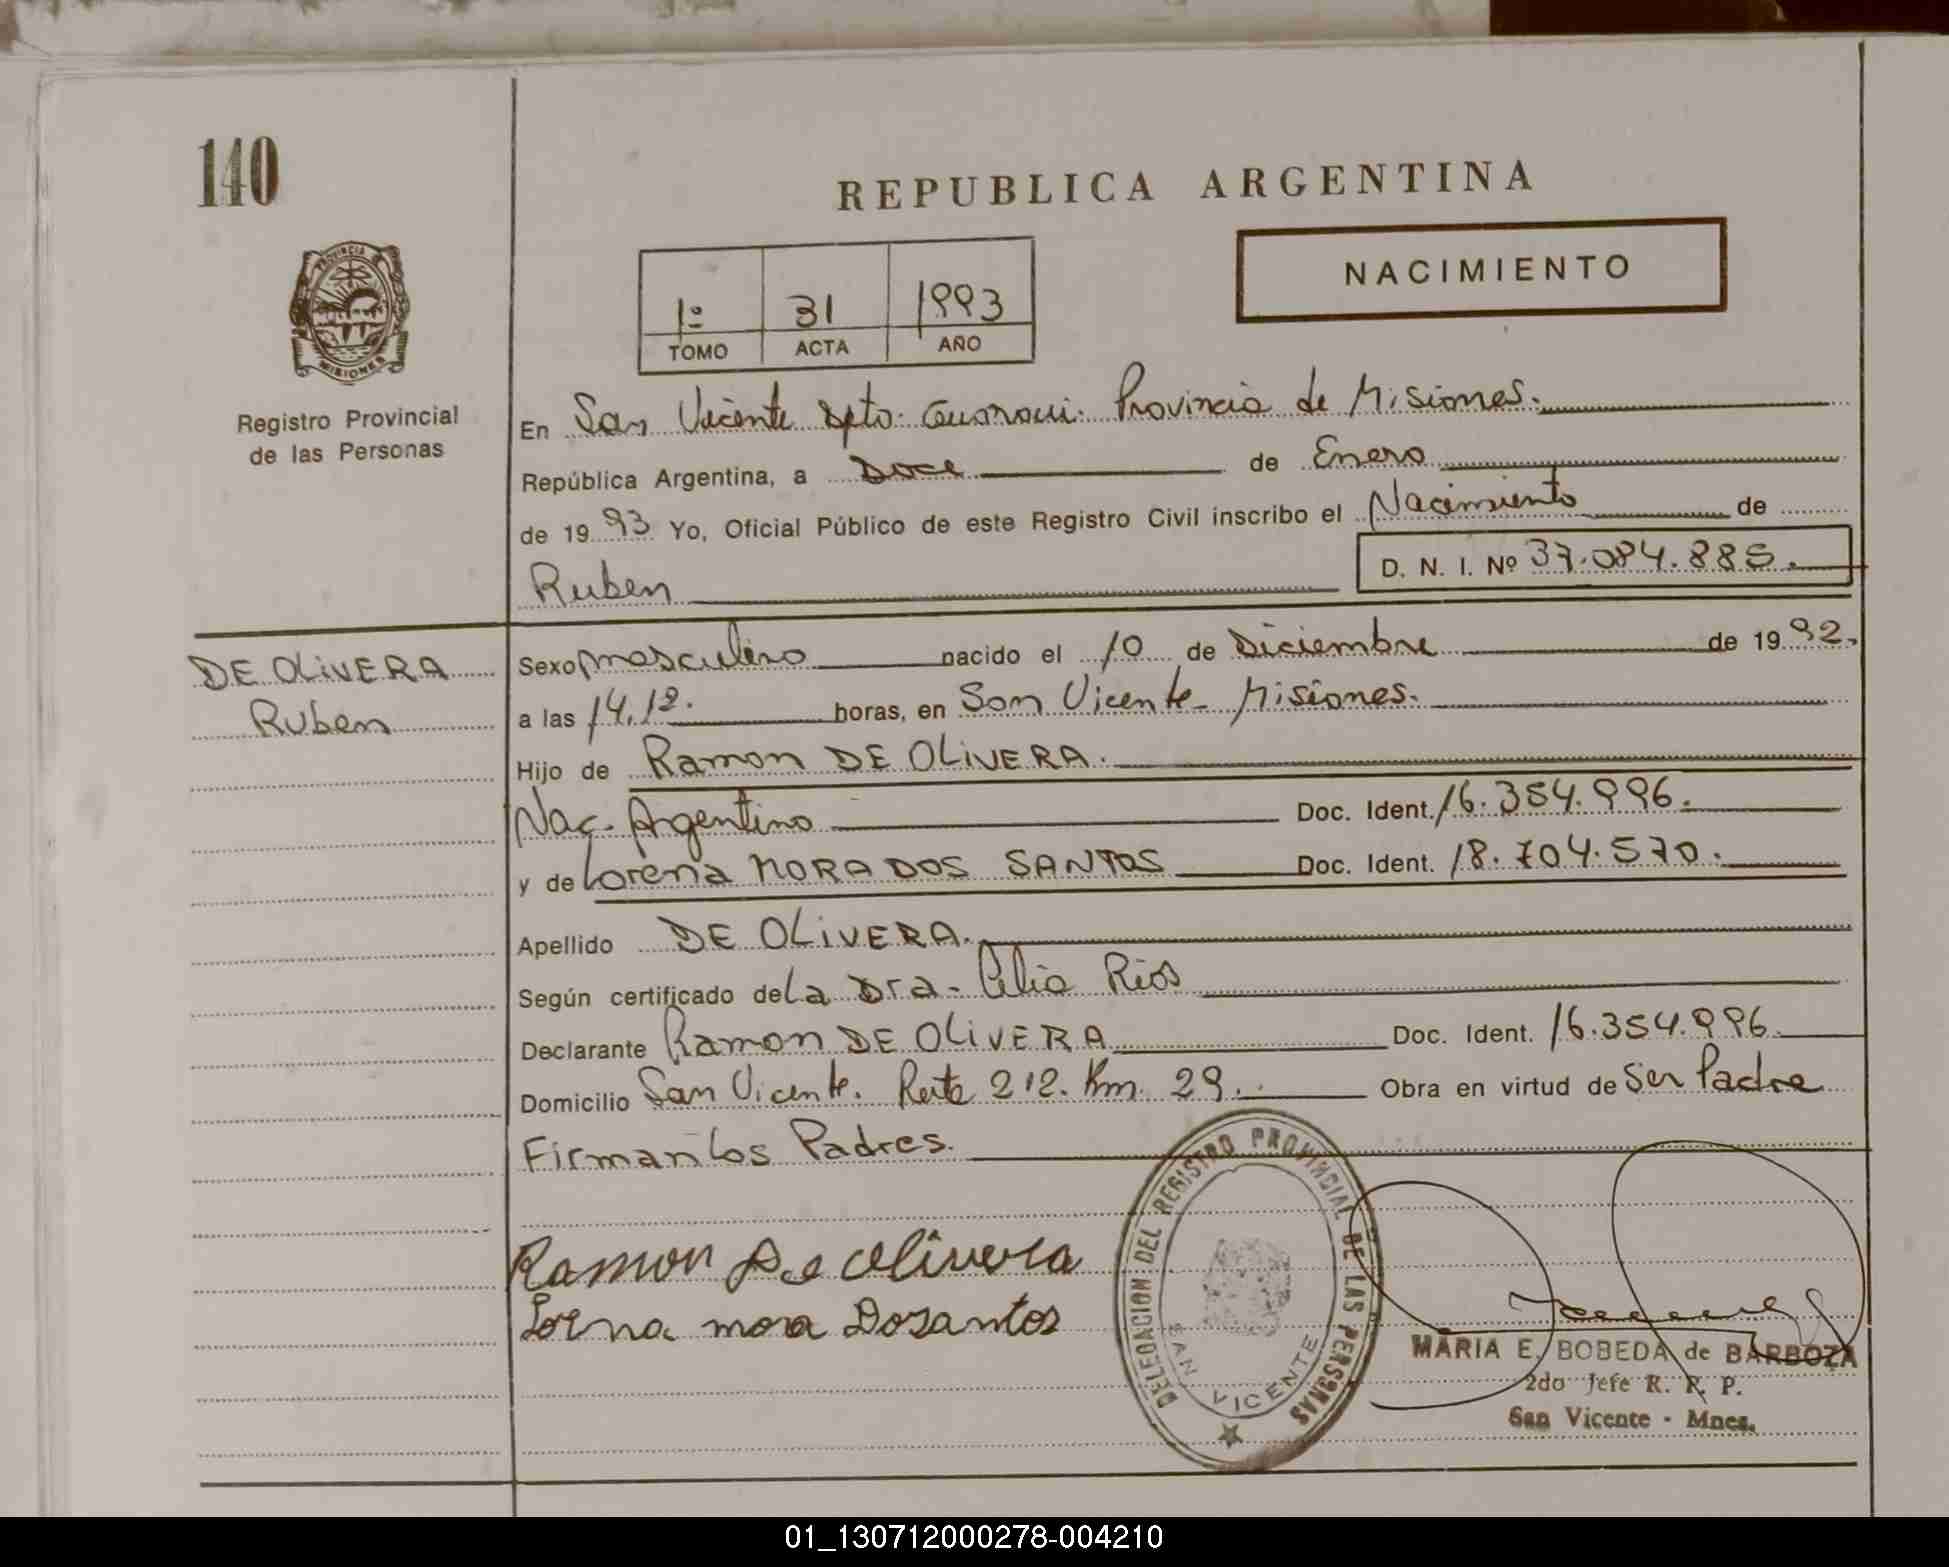 140
REPUBLICA ARGENTINA
NACIMIENTO
PROVINCIA DE
MISIONES
Registro Provincial
de las Personas
1º 31 1993
TOMO ACTA AÑO
En San Vicente Dpto. Guarani. Provincia de Misiones.
República Argentina, a Doce de Enero
de 1993 Yo, Oficial Público de este Registro Civil inscribo el Nacimiento de
Ruben D. N. I. Nº 37.084.885.
DE OLIVERA
Ruben
Sexo masculino nacido el 10 de Diciembre de 1992.
a las 14,12. horas, en San Vicente - Misiones.
Hijo de Ramon DE OLIVERA.
Nac. Argentino Doc. Ident. 16.354.996.
y de Lorena MORA DOS SANTOS Doc. Ident. 18.704.570.
Apellido DE OLIVERA.
Según certificado de La Dra. Celia Rios
Declarante Ramon DE OLIVERA Doc. Ident. 16.354.996.
Domicilio San Vicente. Ruta 212. Km. 29. Obra en virtud de Ser Padre
Firman los Padres.
Ramon De Olivera
Lorna mora Dosantos
DELEGACION DEL REGISTRO PROVINCIAL DE LAS PERSONAS
SAN VICENTE
MARIA E. BOBEDA de BARBOZA
2do Jefe R. P. P.
San Vicente - Mnes.
01_130712000278-004210